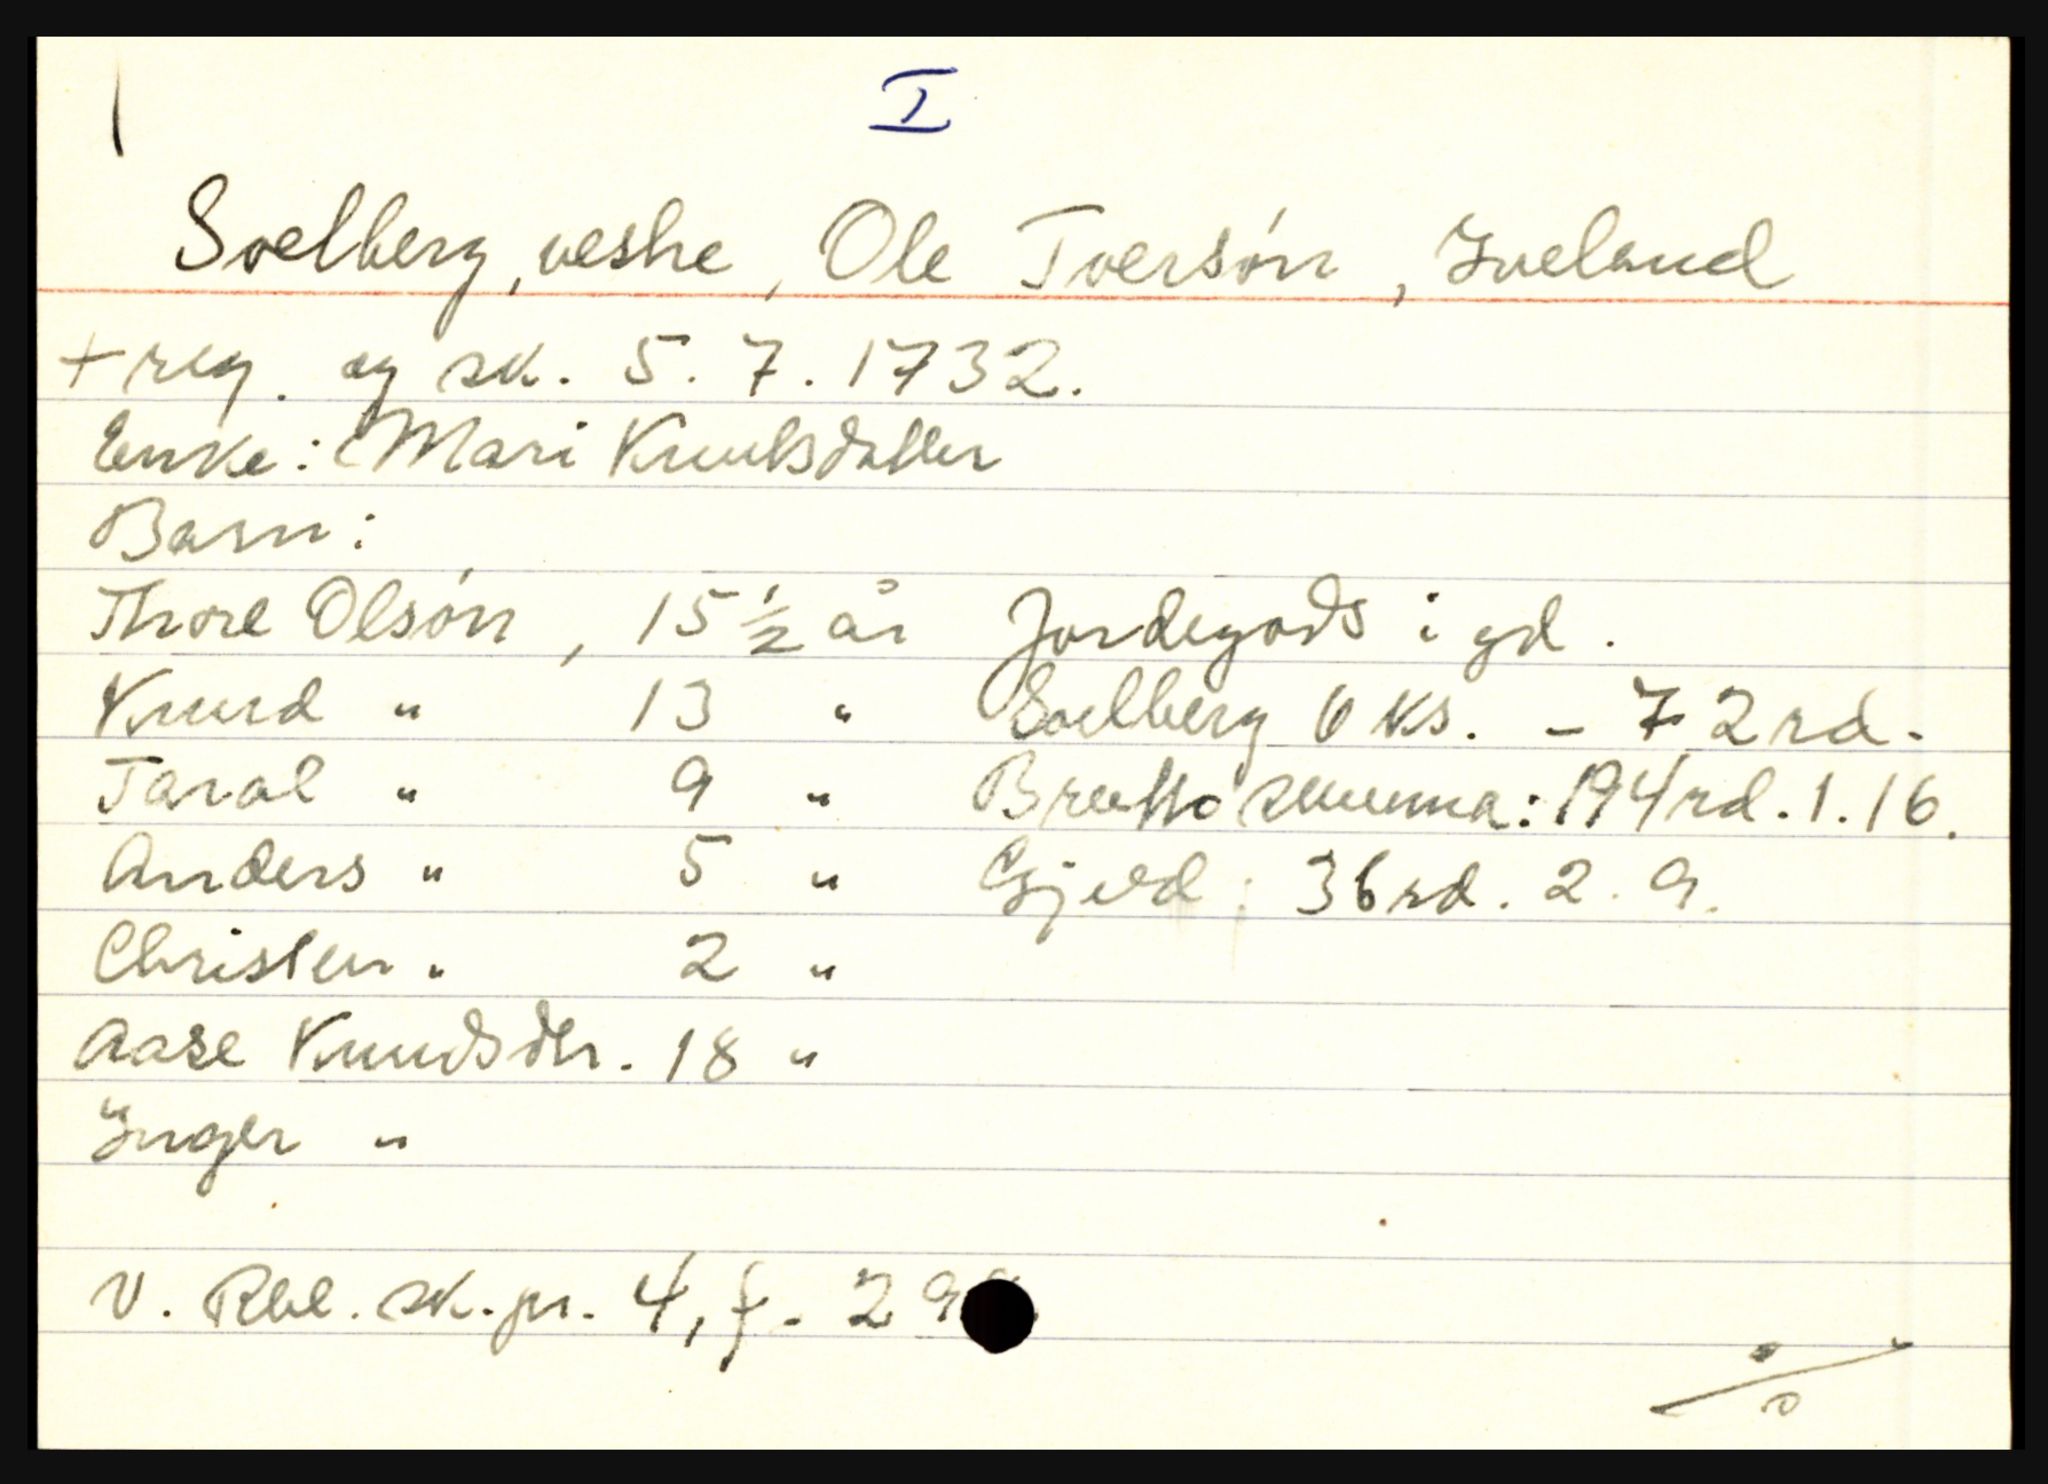 I
Soelberg, vestre, Ole Toersön, Iveland
+ reg. og sk. 5. 7. 1732.
Enke: Mari Knutsdatter
Barn:
Thore Olsön, 15 1/2 år Jordegods i gd.
Knud " 13 " Soelberg 6 ks. - 72 rd.
Taral " 9 " Brutto summa: 194 rd. 1. 16.
Anders " 5 " Gjeld: 36 rd. 2. 9.
Christen " 2 "
Aase Knudsdtr. 18 "
Inger "
V. Rbl. sk. pr. 4, f. 29